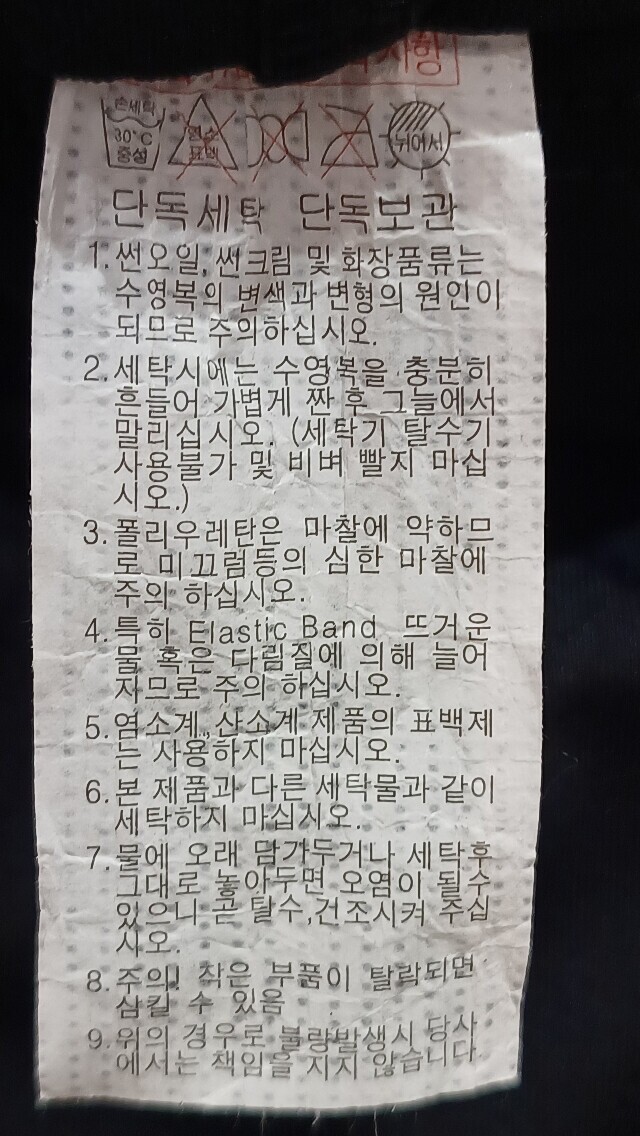 사항
손세탁
30°C
중성
염소
표백
뉘어서
단독세탁 단독보관
1. 썬오일, 썬크림 및 화장품류는
수영복의 변색과 변형의 원인이
되므로 주의하십시오.
2. 세탁시에는 수영복을 충분히
흔들어 가볍게 짠 후 그늘에서
말리십시오. (세탁기 탈수기
사용불가 및 비벼 빨지 마십
시오.)
3. 폴리우레탄은 마찰에 약하므
로 미끄럼등의 심한 마찰에
주의 하십시오.
4. 특히 Elastic Band 뜨거운
물 혹은 다림질에 의해 늘어
지므로 주의 하십시오.
5. 염소계., 산소계 제품의 표백제
는 사용하지 마십시오.
6. 본 제품과 다른 세탁물과 같이
세탁하지 마십시오.
7. 물에 오래 담가두거나 세탁후
그대로 놓아두면 오염이 될수
있으니 곧 탈수,건조시켜 주십
시오.
8. 주의! 작은 부품이 탈락되면
삼킬 수 있음
9. 위의 경우로 불량발생시 당사
에서는 책임을 지지 않습니다.